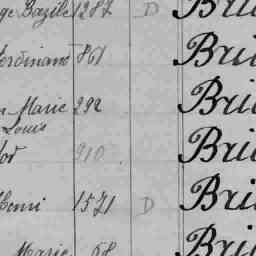 ge Bazile 1287 D Bri
Ferdinand 861 Bri
Marie 292 Bri
Louis
910 Bri
Henri 1571 D Bri
Marie 68 Bri